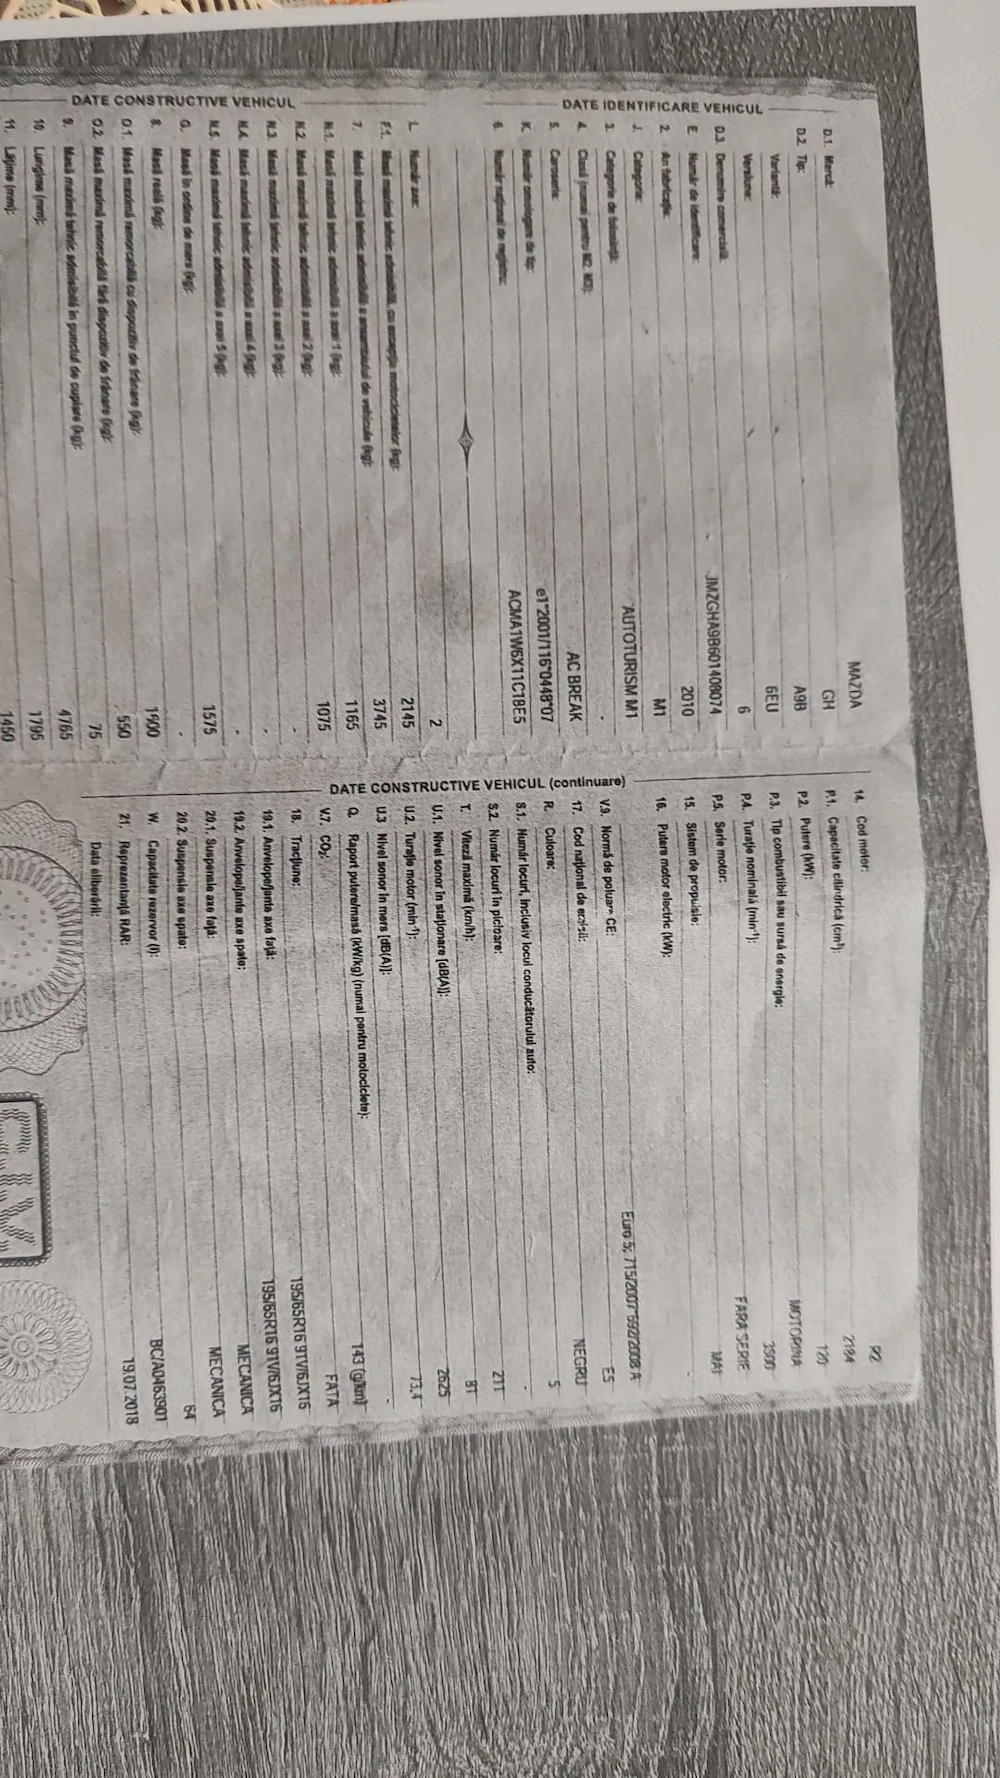 DATE IDENTIFICARE VEHICUL
D.1. Marca: MAZDA
D.2. Tip: GH
Variantă: A9B
Versiune: 6EU
D.3. Denumire comercială: 6
E. Număr de identificare: JMZGHA9B601408074
2. An fabricație: 2010
J. Categorie: M1
3. Categorie de folosință: AUTOTURISM M1
4. Clasă (numai pentru M2, M3): -
5. Caroserie: AC BREAK
K. Număr omologare de tip: e1*2001/116*0448*07
6. Număr național de registru: ACMA1W6X11C18E5
DATE CONSTRUCTIVE VEHICUL
L. Număr axe: 2
F.1. Masă maximă tehnic admisibilă, cu excepția motocicletelor (kg): 2145
7. Masă maximă tehnic admisibilă a ansamblului de vehicule (kg): 3745
N.1. Masă maximă tehnic admisibilă a axei 1 (kg): 1165
N.2. Masă maximă tehnic admisibilă a axei 2 (kg): 1075
N.3. Masă maximă tehnic admisibilă a axei 3 (kg): -
N.4. Masă maximă tehnic admisibilă a axei 4 (kg): -
N.5. Masă maximă tehnic admisibilă a axei 5 (kg): -
G. Masă în ordine de mers (kg): 1575
8. Masă reală (kg): -
O.1. Masă maximă remorcabilă cu dispozitiv de frânare (kg): 1600
O.2. Masă maximă remorcabilă fără dispozitiv de frânare (kg): 550
9. Masă maximă tehnic admisibilă în punctul de cuplare (kg): 75
10. Lungime (mm): 4765
11. Lățime (mm): 1795
1450
DATE CONSTRUCTIVE VEHICUL (continuare)
14. Cod motor: R2
P.1. Capacitate cilindrică (cm³): 2184
P.2. Putere (kW): 120
P.3. Tip combustibil sau sursă de energie: MOTORINA
P.4. Turație nominală (min⁻¹): 3500
P.5. Serie motor: FARA SERIE
15. Sistem de propulsie:
16. Putere motor electric (kW): -
V.9. Normă de poluare CE: Euro 5; 715/2007*692/2008 A
17. Cod național de emisii: E5
R. Culoare: NEGRU
S.1. Număr locuri, inclusiv locul conducătorului auto: 5
S.2. Număr locuri în picioare: -
T. Viteză maximă (km/h): 211
U.1. Nivel sonor în staționare [dB(A)]: 81
U.2. Turație motor (min⁻¹): 2625
U.3 Nivel sonor în mers [dB(A)]: 73,4
Q. Raport putere/masă (kW/kg) (numai pentru motociclete): -
V.7. CO₂: 143 (g/km)
18. Tracțiune: FATA
19.1. Anvelope/jante axe față: 195/65R16 91V/6JX16
19.2. Anvelope/jante axe spate: 195/65R16 91V/6JX16
20.1. Suspensie axe față: MECANICA
20.2. Suspensie axe spate: MECANICA
W. Capacitate rezervor (l): 64
21. Reprezentanță RAR: BC/A0463901
Data eliberării: 19.07.2018